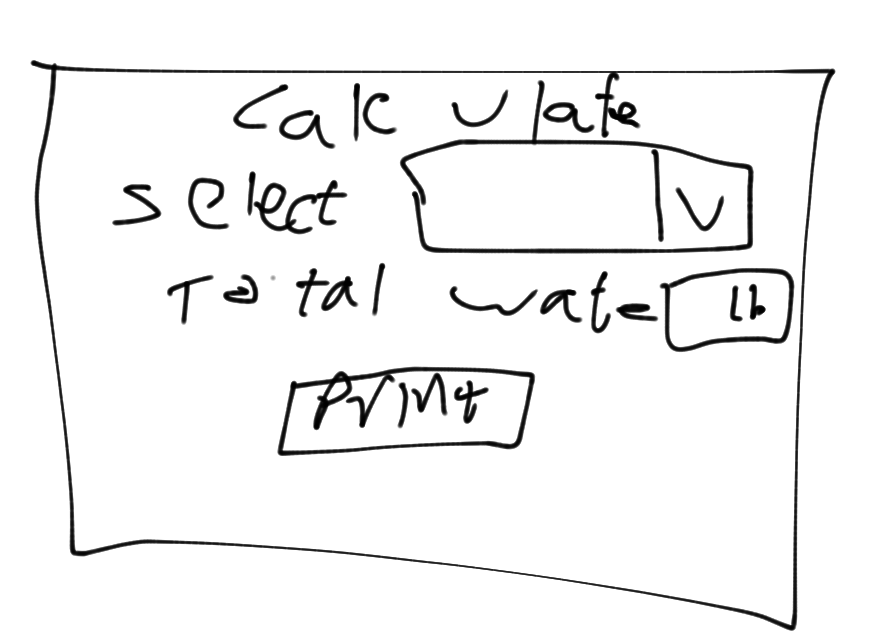 Calculate
select
Total wate lb
Print